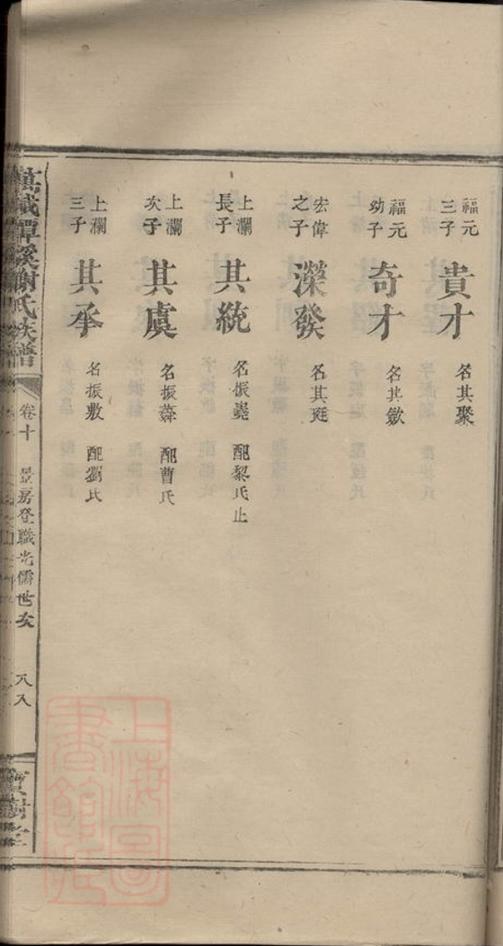 福元三子 貴才 名其聚
福元幼子 奇才 名其斂
宏偉之子 濚發 名其珽
上瀾長子 其統 名振堯 配黎氏止
上瀾次子 其虞 名振舜 配曹氏
上瀾三子 其承 名振敷 配劉氏
萬載潭溪謝氏族譜 卷十 昱房登職光儒世次 八八 寶樹堂
上海圖書館